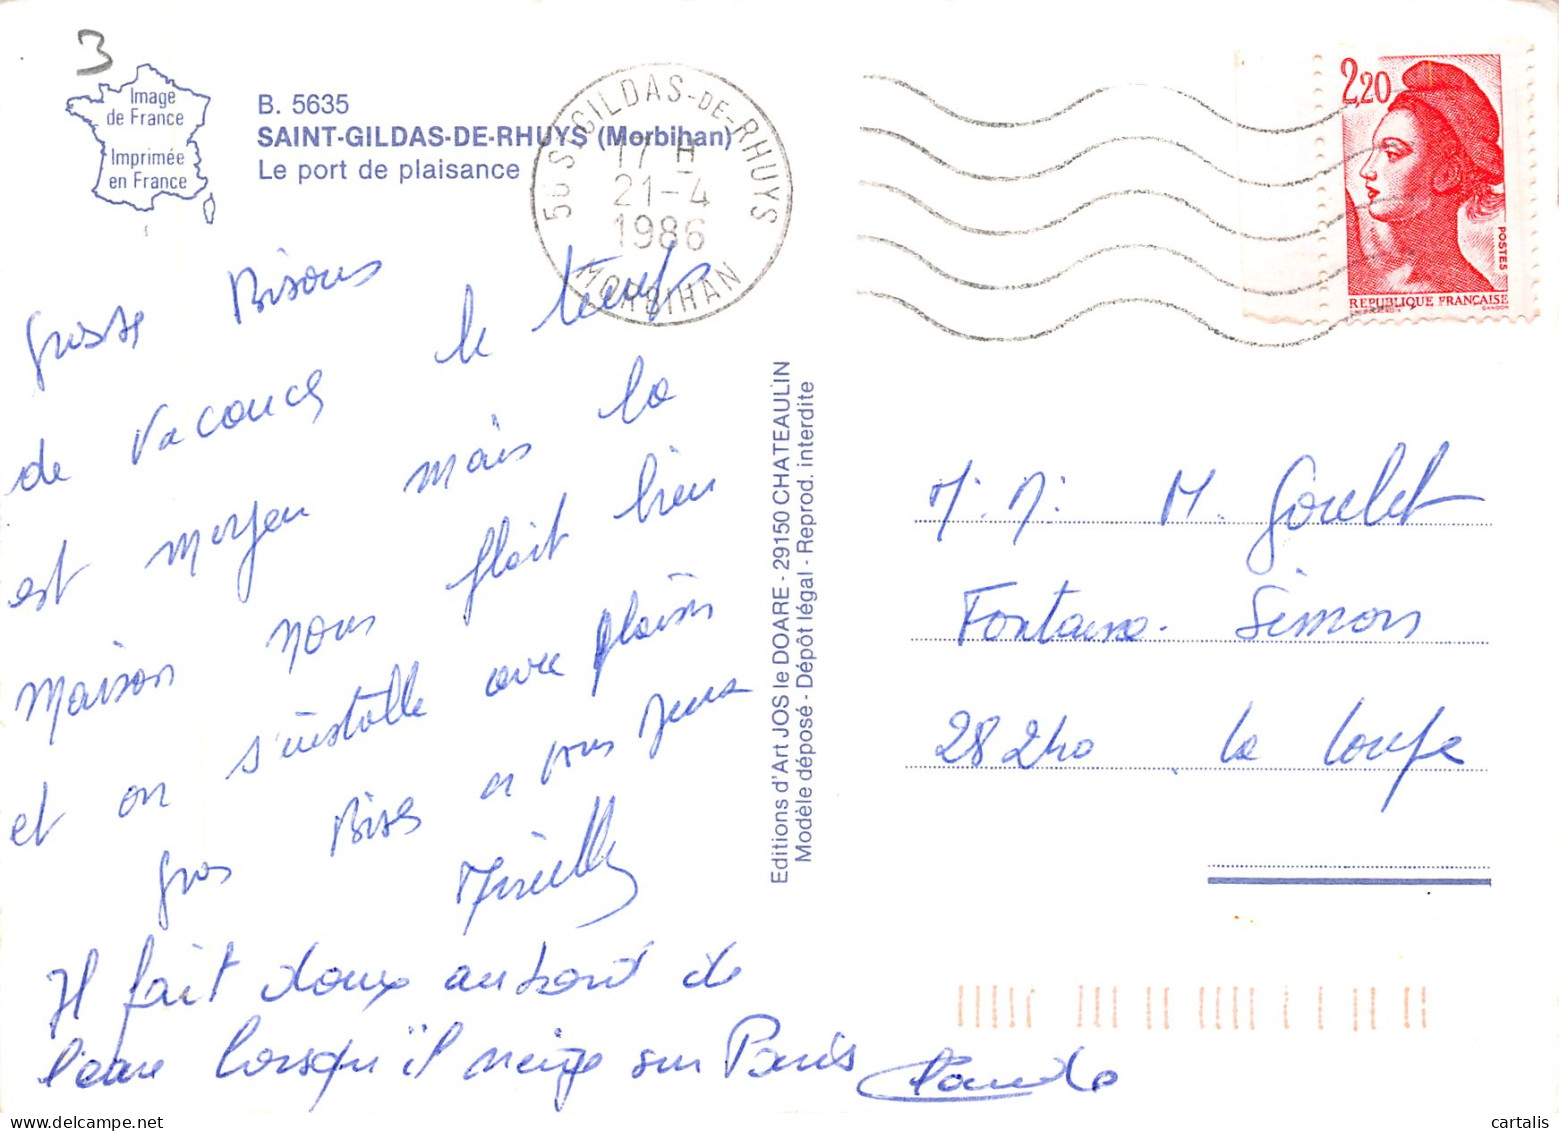 3
Image
de France
Imprimée
en France
B. 5635
SAINT-GILDAS-DE-RHUYS (Morbihan)
Le port de plaisance
56 ST-GILDAS-DE-RHUYS
17 H
21-4
1986
MORBIHAN
2,20
POSTES
REPUBLIQUE FRANÇAISE
GANDON
Bisous
de Vacances le temps
est moyen mais la
maison nous plait bien
et on s'installe avec plaisir
gros Bises a vous
Mireille
Il fait doux au bord de
l'eau lorsqu'il neige sur Paris
Claude
Editions d'Art JOS le DOARE - 29150 CHATEAULIN
Modèle déposé - Dépôt légal - Reprod. interdite
M. Goulet
Fontaine. Simon
28240 la loupe
cartalis